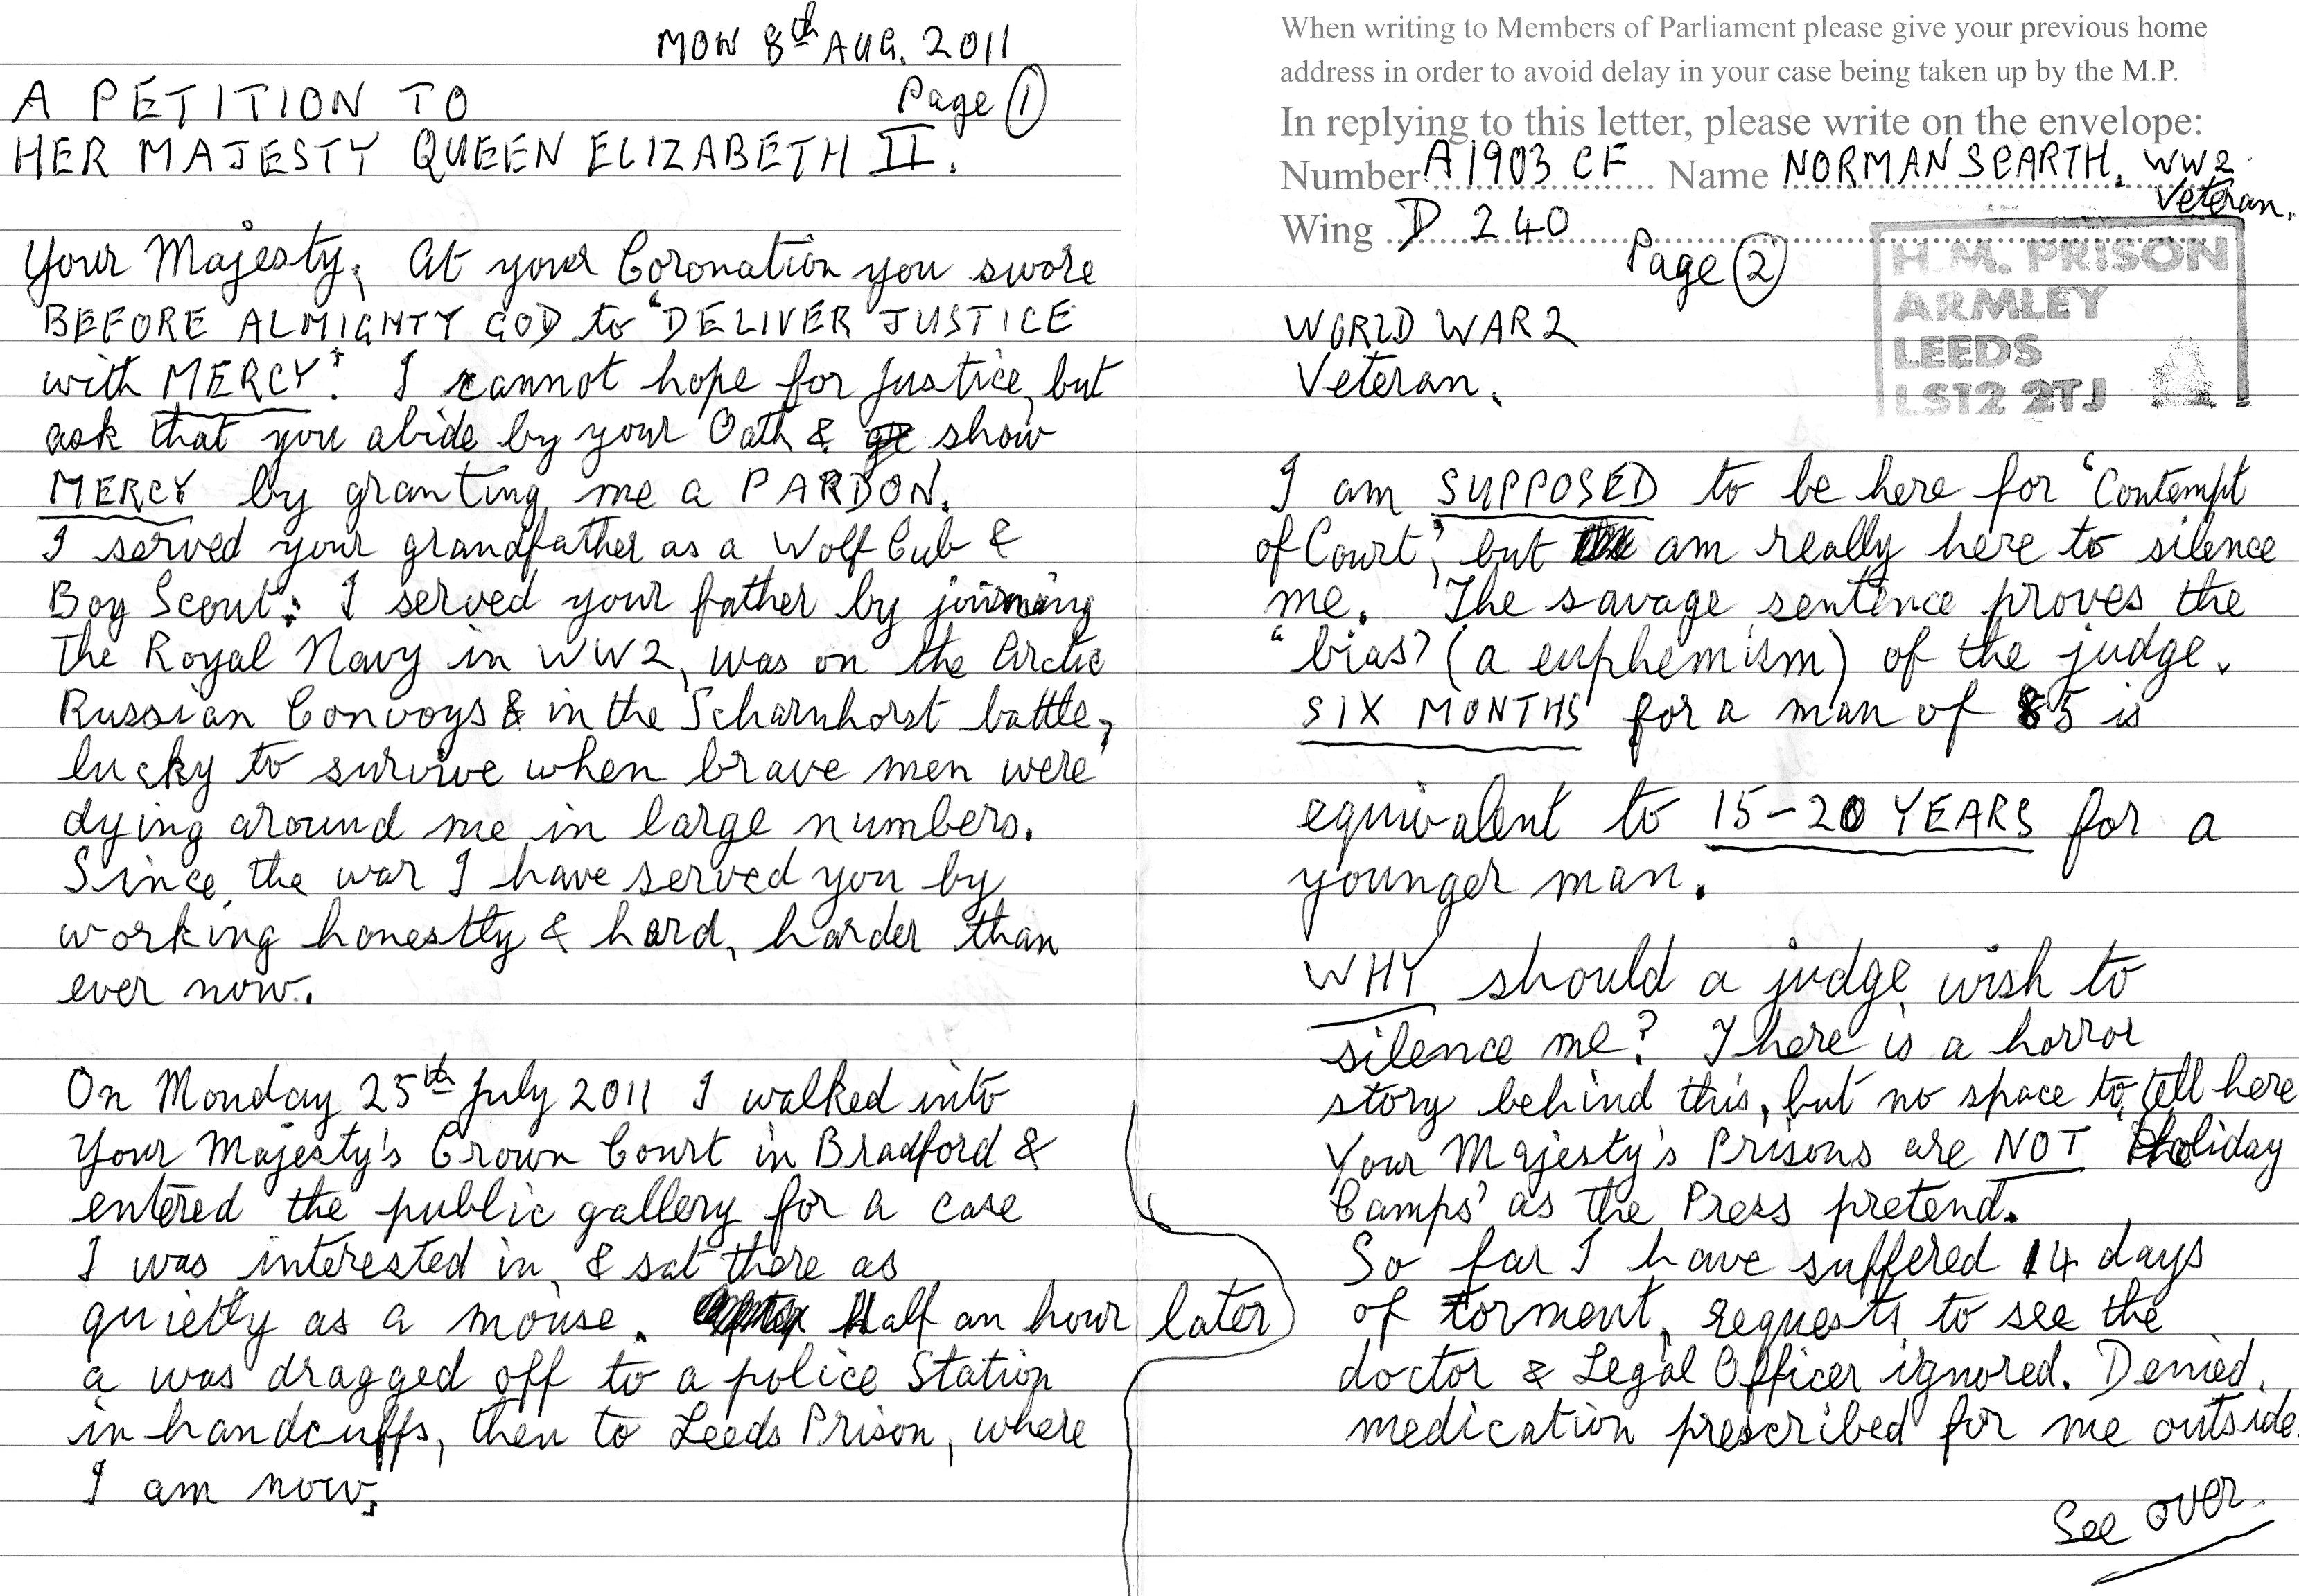 MON 8th AUG. 2011
A PETITION TO Page 1
HER MAJESTY QUEEN ELIZABETH II.
Your Majesty, At your Coronation you swore
BEFORE ALMIGHTY GOD to 'DELIVER JUSTICE
with MERCY'. I cannot hope for justice, but
ask that you abide by your Oath & show
MERCY by granting me a PARDON.
I served your grandfather as a Wolf Cub &
Boy Scout: I served your father by joining
the Royal Navy in WW2, was on the Arctic
Russian Convoys & in the Scharnhorst battle,
lucky to survive when brave men were
dying around me in large numbers.
Since the war I have served you by
working honestly & hard, harder than
ever now.
On Monday 25th July 2011 I walked into
Your Majesty's Crown Court in Bradford &
entered the public gallery for a case
I was interested in, & sat there as
quietly as a mouse. Half an hour later
a was dragged off to a police Station
in handcuffs, then to Leeds Prison, where
I am now.
When writing to Members of Parliament please give your previous home
address in order to avoid delay in your case being taken up by the M.P.
In replying to this letter, please write on the envelope:
Number A1903 CF Name NORMAN SCARTH. WW2
Veteran.
Wing D 240
Page 2
H.M. PRISON
ARMLEY
LEEDS
LS12 2TJ
WORLD WAR 2
Veteran.
I am SUPPOSED to be here for 'Contempt
of Court', but am really here to silence
me. The savage sentence proves the
'bias' (a euphemism) of the judge.
SIX MONTHS for a man of 85 is
equivalent to 15-20 YEARS for a
younger man.
WHY should a judge wish to
silence me? There is a horror
story behind this, but no space to tell here
Your Majesty's Prisons are NOT 'Holiday
Camps' as the Press pretend.
So far I have suffered 14 days
of torment, requests to see the
doctor & Legal Officer ignored. Denied
medication prescribed for me outside.
See over.